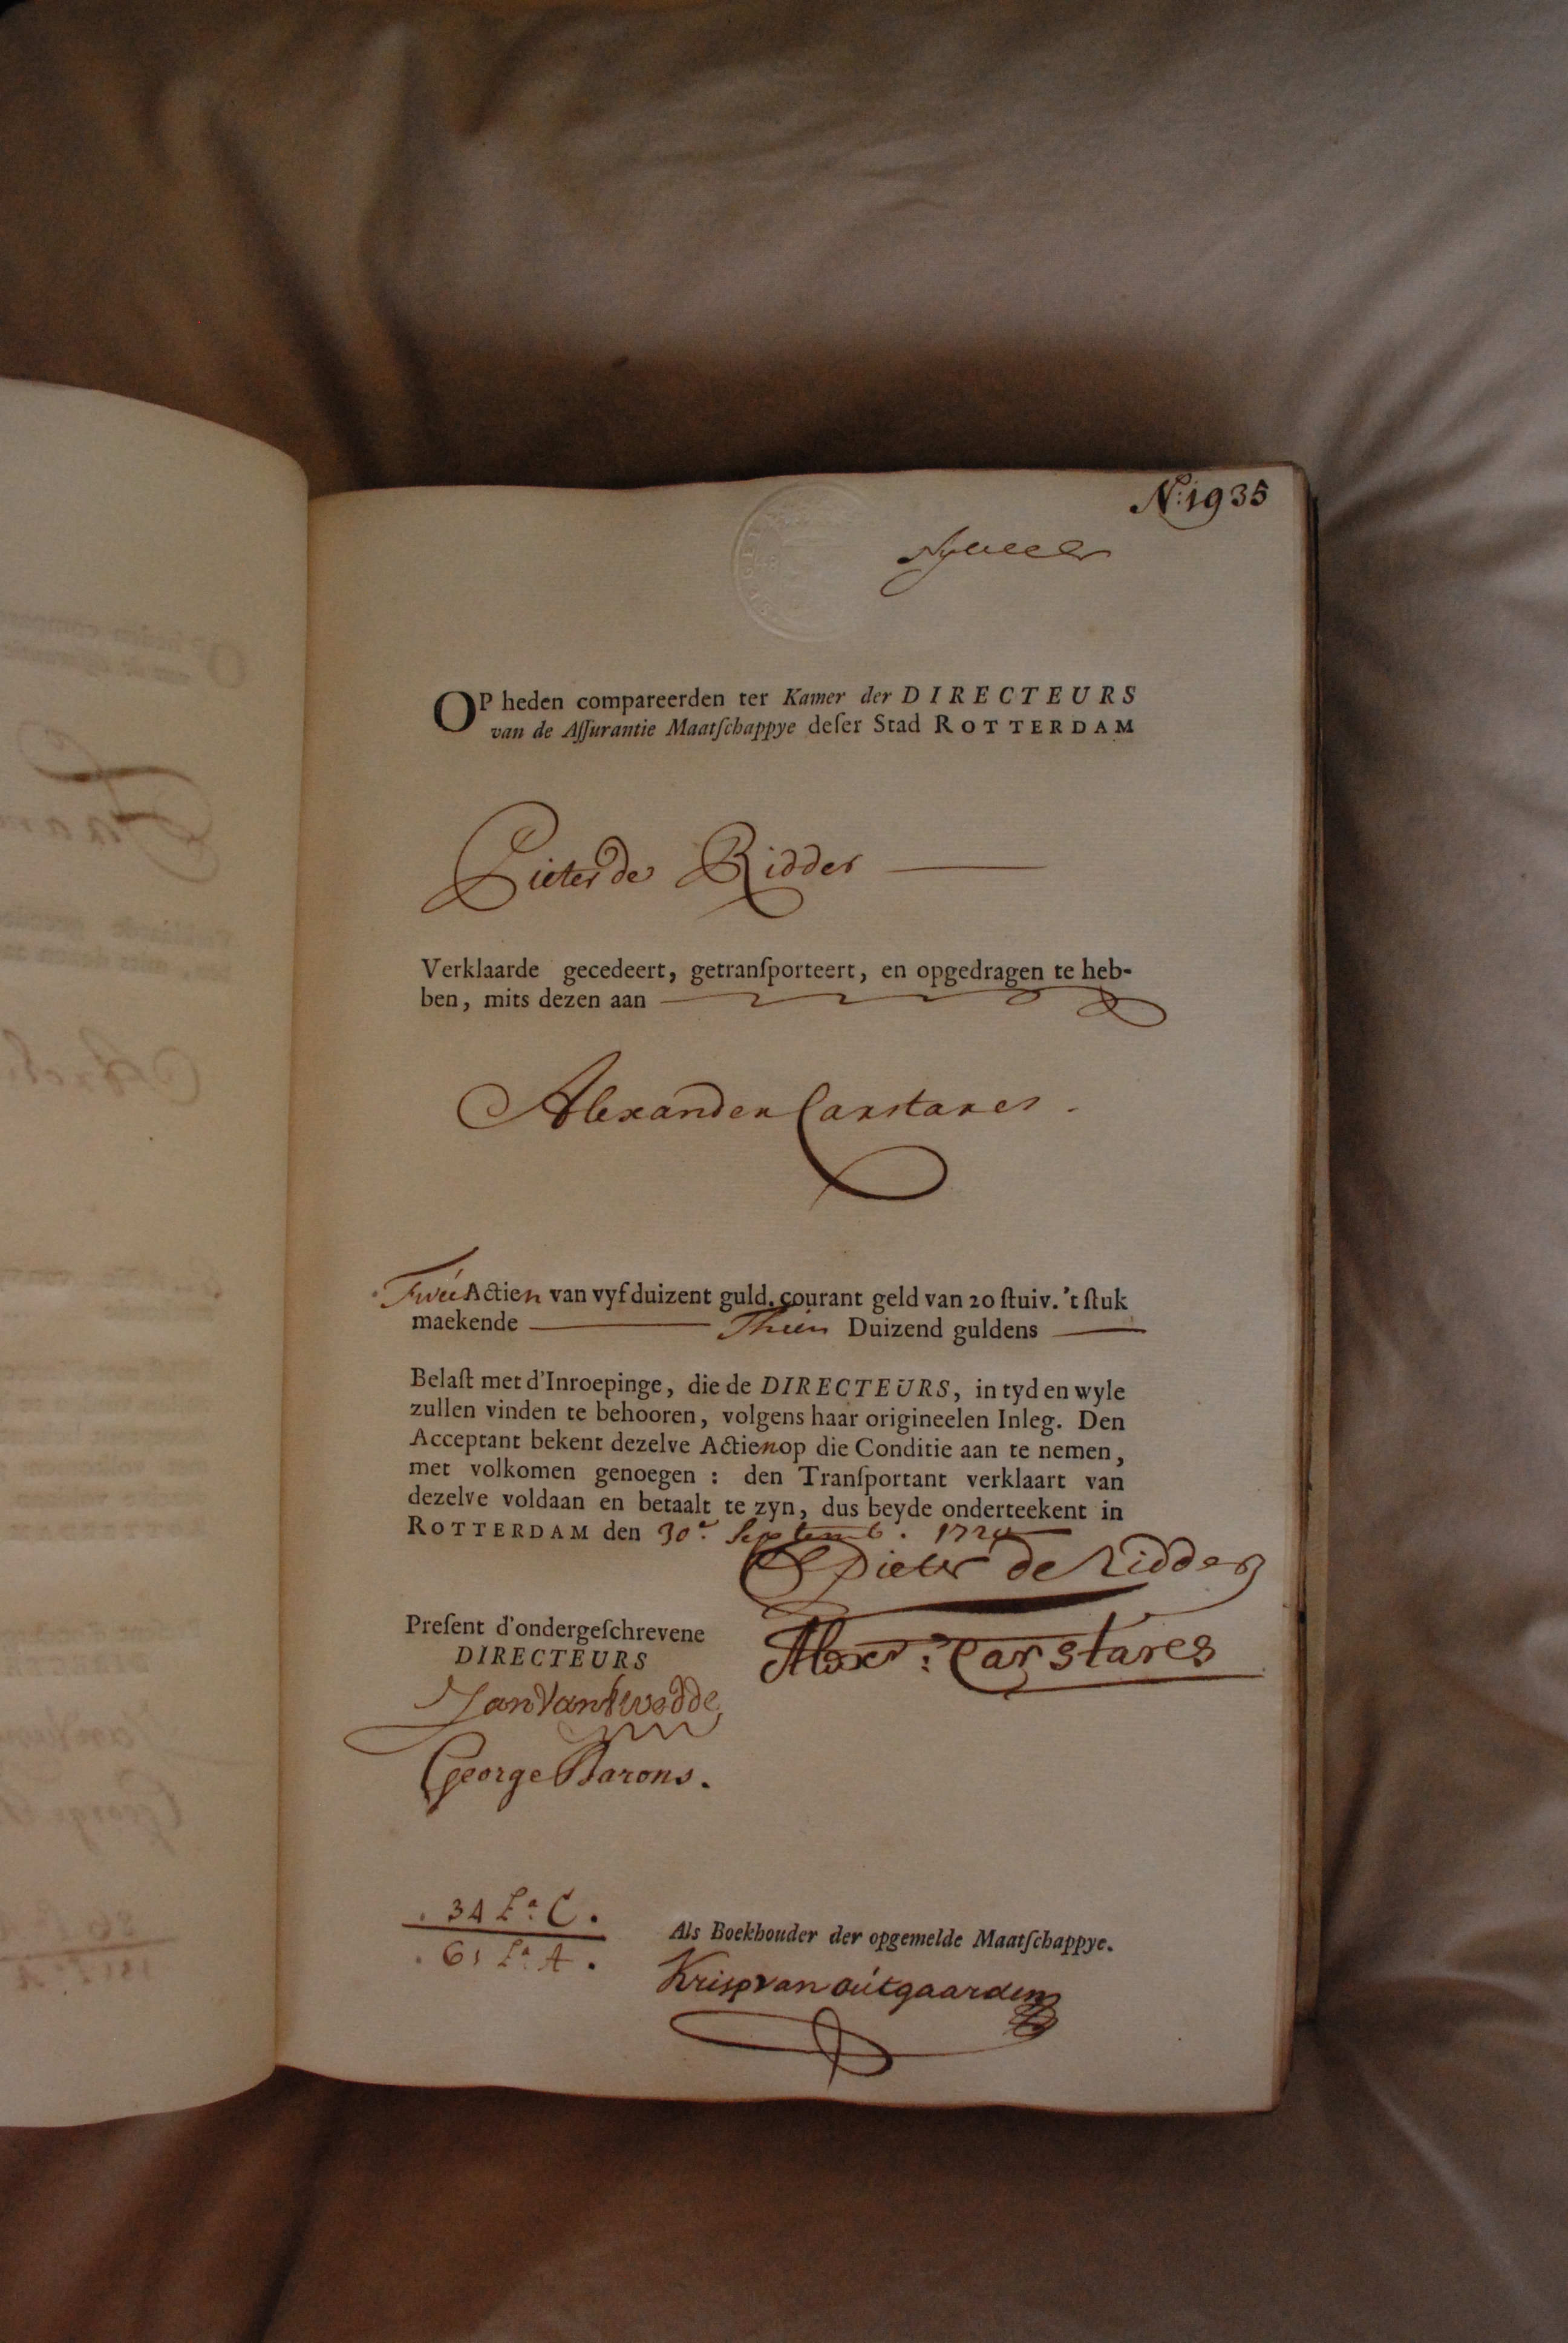 N:1935
OP heden compareerden ter Kamer der DIRECTEURS
van de Aſſurantie Maatſchappye deſer Stad ROTTERDAM
Pieter de Ridder
Verklaarde gecedeert, getranſporteert, en opgedragen te heb-
ben, mits dezen aan
Alexander Carstares.
Twée Actien van vyf duizent guld. courant geld van 20 ſtuiv. 't ſtuk
maekende Thien Duizend guldens
Belaſt met d'Inroepinge, die de DIRECTEURS, in tyd en wyle
zullen vinden te behooren, volgens haar origineelen Inleg. Den
Acceptant bekent dezelve Actien op die Conditie aan te nemen,
met volkomen genoegen : den Tranſportant verklaart van
dezelve voldaan en betaalt te zyn, dus beyde onderteekent in
ROTTERDAM den 30e. Septemb. 1720
Pieter de Ridder
Preſent d'ondergeſchrevene
DIRECTEURS
Alexr: Carstares
George Barons.
34 La. C.
61 La. A.
Als Boekhouder der opgemelde Maatſchappye.
Krisp van outgaarden